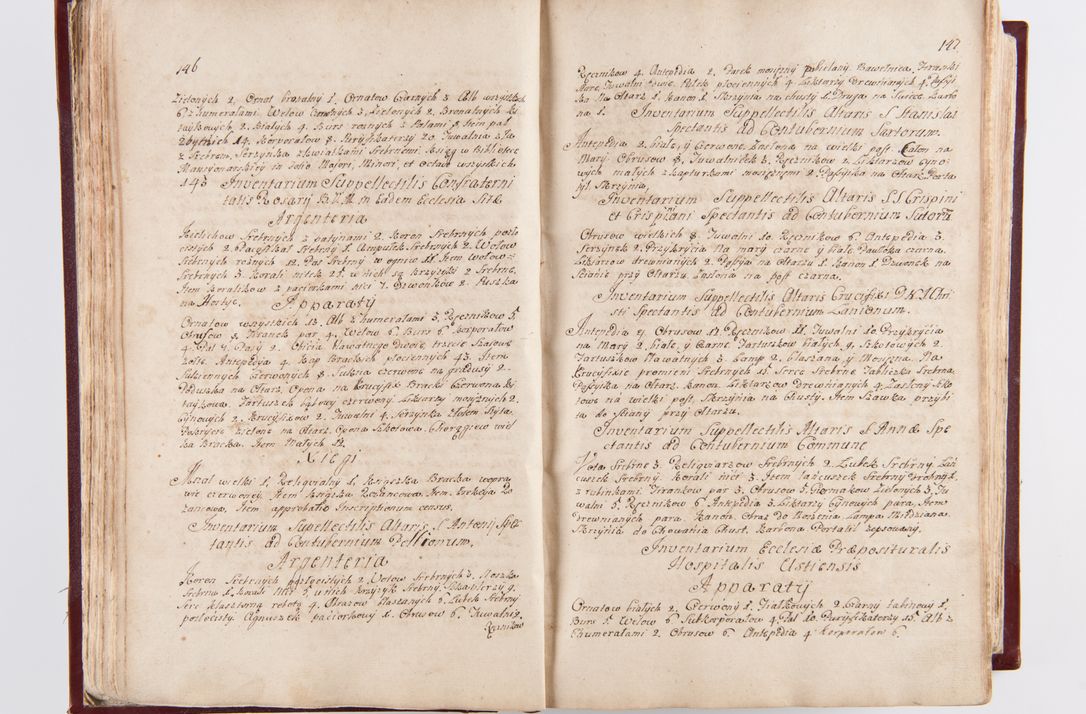 146
Zielonych 2. Ornat brozalny 1. Ornatow Czarnych 3. Alb wszystkich
6 z humeralami. Welow Czerwonych 3. Zielonych 2. Bronatnych Ki
taykowych 2. Białych 4. Burs roznych z Palami 8. Item pal
zbytnich 14. Korporałow 8. Puryfikaterzy 20. Tuwalnia
z Srebrem, Skrzynka zkwiatkami Srebrnemi. Ksiąg w Bibliotece
Mansyonarskiey in folio Majori, Minori, et Octavo wszystkich
143 Inventarium Suppellectilis Confraterni
tatis Rosarÿ B.V.M. in Eadem Ecclesia Sitæ
Argenteria
Kielichow Srebrnych z patynami 2. Koron Srebrnych pozło
cistych 2. Pacyfikał Srebrny 1. Ampułek Srebrnych 2. Wotow
Srebrnych roznych 12. Pas Srebrny w ogniw 11. Item Wotow
Srebrnych 3. Korali nitek 21. w nich są krzyżyki 2 Srebrne,
Item Koralikow z paciorkami nici 7. Dzwonkow 2. Puszka
na Hostye. Apparatÿ
Ornatow wszystkich 13. Alb z humeralami 3. Ręcznikow 5.
Obrusow 3. Firanek par 4. Welow 6. Burs 6. Korporałow
4. Pal 4. Pasy 2. Obicia Kawatnego Dwoie, trzecie Szarowe
zołte. Antepedya 4. Kap Brackich płociennych 43. Item
Sukiennych Czerwonych 8. Suknia czerwona na gradusy 2.
Poduszka na Ołtarz. Opona na Krucyfix Bracki Czerwona Ki
taykowa. Fartuszek Kątowy czerwony Lichtarzy mosiężnych 2.
Cynowych 2. Krucyfixow 2. Tuwalni 4. Skrzynka złotem Szyta.
Pokrycie Zielone na Ołtarz. Opona Szkotowa. Chorągiew wiel
ka Bracka. Item Małych 12.
Xięgi
Mszał wielki 1. Requialny 1. Księszka Bracka wopra
wie czerwoney. Item Księszka Rozancowa. Item. Erekcya Ro
zanowa, Item approbatio Inscriptionum census.
Inventarium Supellectilis Altaris S. Antonÿ Spe
ctantis ad Contubernium Pellionum.
Argenteria
Koron Srebrnych pozłocistych 2. Wotow Srebrnych 3. Noszka
Srebrna 1. Korali nici 5. w nich krzyzyk Srebrny. Szkaplerzy 9.
Serc Klasztorną robotą 4. Obrazow blaszanych 2. Lubek Srebrny
pozłocisty. Agnuszek paciorkowy 1. Obrusow 6. Tuwalni 9.
Ręcznikow
147
Ręcznikow 4. Antepedia 2. Pasek mosiężny Bawełnica, Firanki
Stare, Tuwalni dwie, Palek płociennych 4. Lichtarzy Drewnianych 4. Pasyi
ka na Ołtarz 1. Kanon 1. Skrzynia na chusty 1. Druga na Swiece Karbo
na 1. Inventarium Suppellectilis Altaris S. Stanislai
Spectantis ad Contubernium Sartorum.
Antepedia 2. białe, y Czerwone Zasłona na wielki post. Całon na
Mary. Obrusow 8. Tuwalniek 3. Ręcznikow 2. Lichtarzow Cyno
wych małych z kapturkami mosiężnemi 2. Pasyika na Ołtarz Porta
tyl Skrzynia.
Inventarium Suppellectilis Altaris S.S. Crispini
et Crispiani Spectantis ad Contubernium Sutorū
Obrusow wielkich 8. Tuwalni 10. Ręcznikow 6. Antepedia 3.
Skrzynek 2. Przykrycia na mary czarne y białe Pawłoka czarna.
Lichtarzow drewnianych 2. Pasyja na Ołtarzu 1. Kanon 1. Dzwonek na
Scianie przy Ołtarzu. Zasłona na post czarna.
Inventarium Suppellectilis Altaris Crucifixi D.N.J.Chri
sti Spectantis ad Contubernium Lanionum.
Antepedia 4. Obrusow 12. Ręcznikow 11. Tuwalni 10. Przykrycia
na Mary 2. białe, y Czarne Fartuszkow białych 9. Szkotowych 2.
Fartuszkow Kawatnych 3. Lamp 2. blaszana, y Mosiężna. Na
Krucyfixie promieni Srebrnych 15. Serce Srebrne Tabliczka Srebrna.
Pasyika na Ołtarz. Kanon. Lichtarzow Drewnianych 4. Zasłony Szko
towe na wielki post. Skrzynia na Chusty. Item Szawka przybi
ta do Sciany przy Ołtarzu.
Inventarium Suppellectilis Altaris S. Annæ Spe
ctantis ad Contubernium Commune
Vota Srebrne 3. Reliquiarzow Srebrnych 2. Lubek Srebrny. Łań
cuszek Srebrny Korali nici 3. Item Łańcuszek Srebrny drobny 1.
z rubinkami. Firankow par 3. Obrusow 5. Piernakow Zielonych 3. Tu
walni 5. Ręcznikow 6. Antepedia 3. Lichtarzy Cynowych para, Item
Drewnianych para. Kanon. Obraz do Noszenia. Lampa Miedziana.
Skrzynia do Chowania Chust. Karbona. Portatil zepsowany.
Inventarium Ecclesiæ Præposituralis
Hospitalis Ustiensis
Apparatÿ
Ornatow białych 2. Czerwony 1. Fiałkowych 2. Czarny tabinowy 1.
Burs 5. Welow 6. Subkorporałow 4. Pal 10. Puryfikaterzy 15. Alb z
humerałami 2. Obrusow 6. Antepedia 4 Korporałow 6.